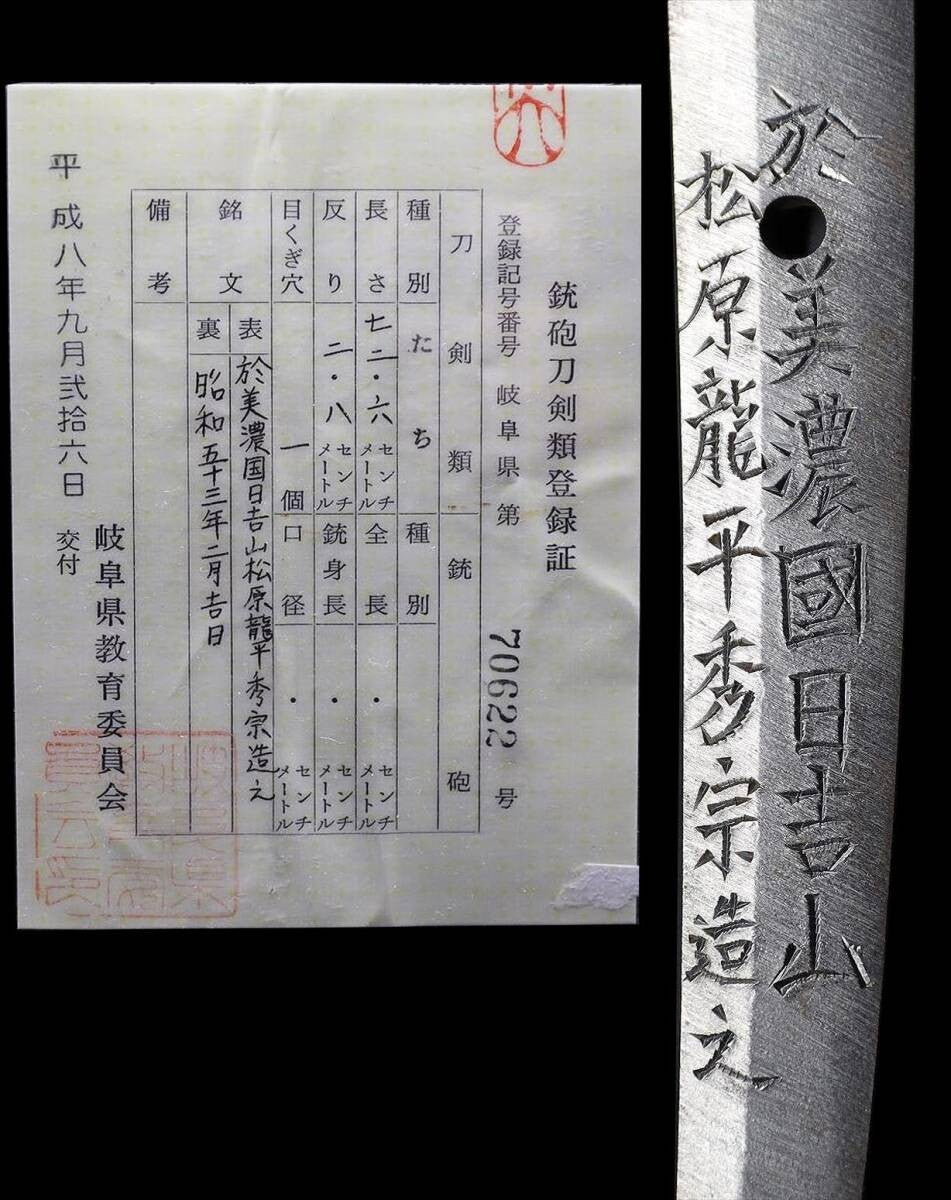 銃砲刀剣類登録証
登録記号番号 岐阜県 第 70622 号
刀剣類 銃砲
種別 たち 種別
長さ 七二・六 センチメートル 全長 ・ センチメートル
反り 二・八 センチメートル 銃身長 ・ センチメートル
目くぎ穴 一個 口径 ・ センチメートル
銘文
表 於美濃国日吉山松原龍平秀宗造之
裏 昭和五十三年二月吉日
備考
平成八年九月弐拾六日 交付
岐阜県教育委員会
於美濃國日吉山
松原龍平秀宗造之